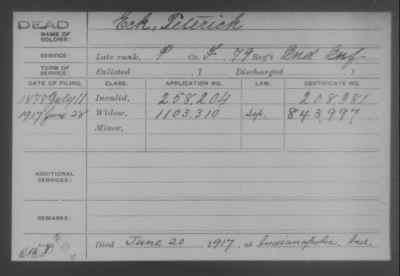 DEAD
NAME OF SOLDIER: Eck, Teterick
SERVICE: Late rank, P Co. F, 79 Reg't Ind Inf
TERM OF SERVICE: Enlisted , 1 Discharged , 1
DATE OF FILING. CLASS. APPLICATION NO. LAW. CERTIFICATE NO.
1878 July 11 Invalid, 258,204 208,381
1917 June 28 Widow, 1103,310 843,997
Minor,
ADDITIONAL SERVICES:
REMARKS:
Died June 20, 1917, at Indianapolis, Ind.